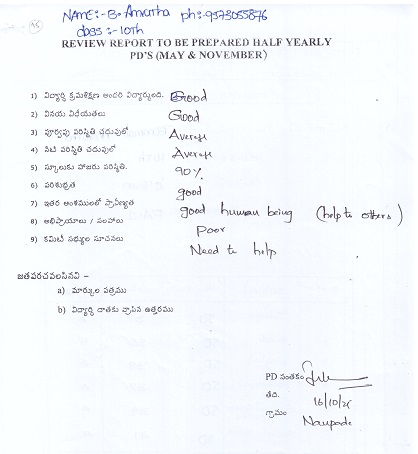 NAME:- B. Amrutha ph:- 9573055876
class :- 10th
REVIEW REPORT TO BE PREPARED HALF YEARLY
PD'S (MAY & NOVEMBER)
1) విద్యార్థి క్రమశిక్షణ అందరి విద్యార్థులంది. Good
2) వినయ విధేయతలు Good
3) పూర్వపు పరిస్థితి చదువులో Average
4) నేటి పరిస్థితి చదువులో Average
5) స్కూలుకు హాజరు పరిస్థితి. 90%
6) పరిశుభ్రత good
7) ఇతర అంశములలో ప్రావీణ్యత good human being (help to others)
8) అభిప్రాయాలు / సలహాలు Poor
9) కమిటీ సభ్యుల సూచనలు Need to help
జతపరచవలసినవి –
a) మార్కుల పత్రము
b) విద్యార్థి దాతకు వ్రాసిన ఉత్తరము
PD సంతకం
తేది. 16/10/
గ్రామం Naupada